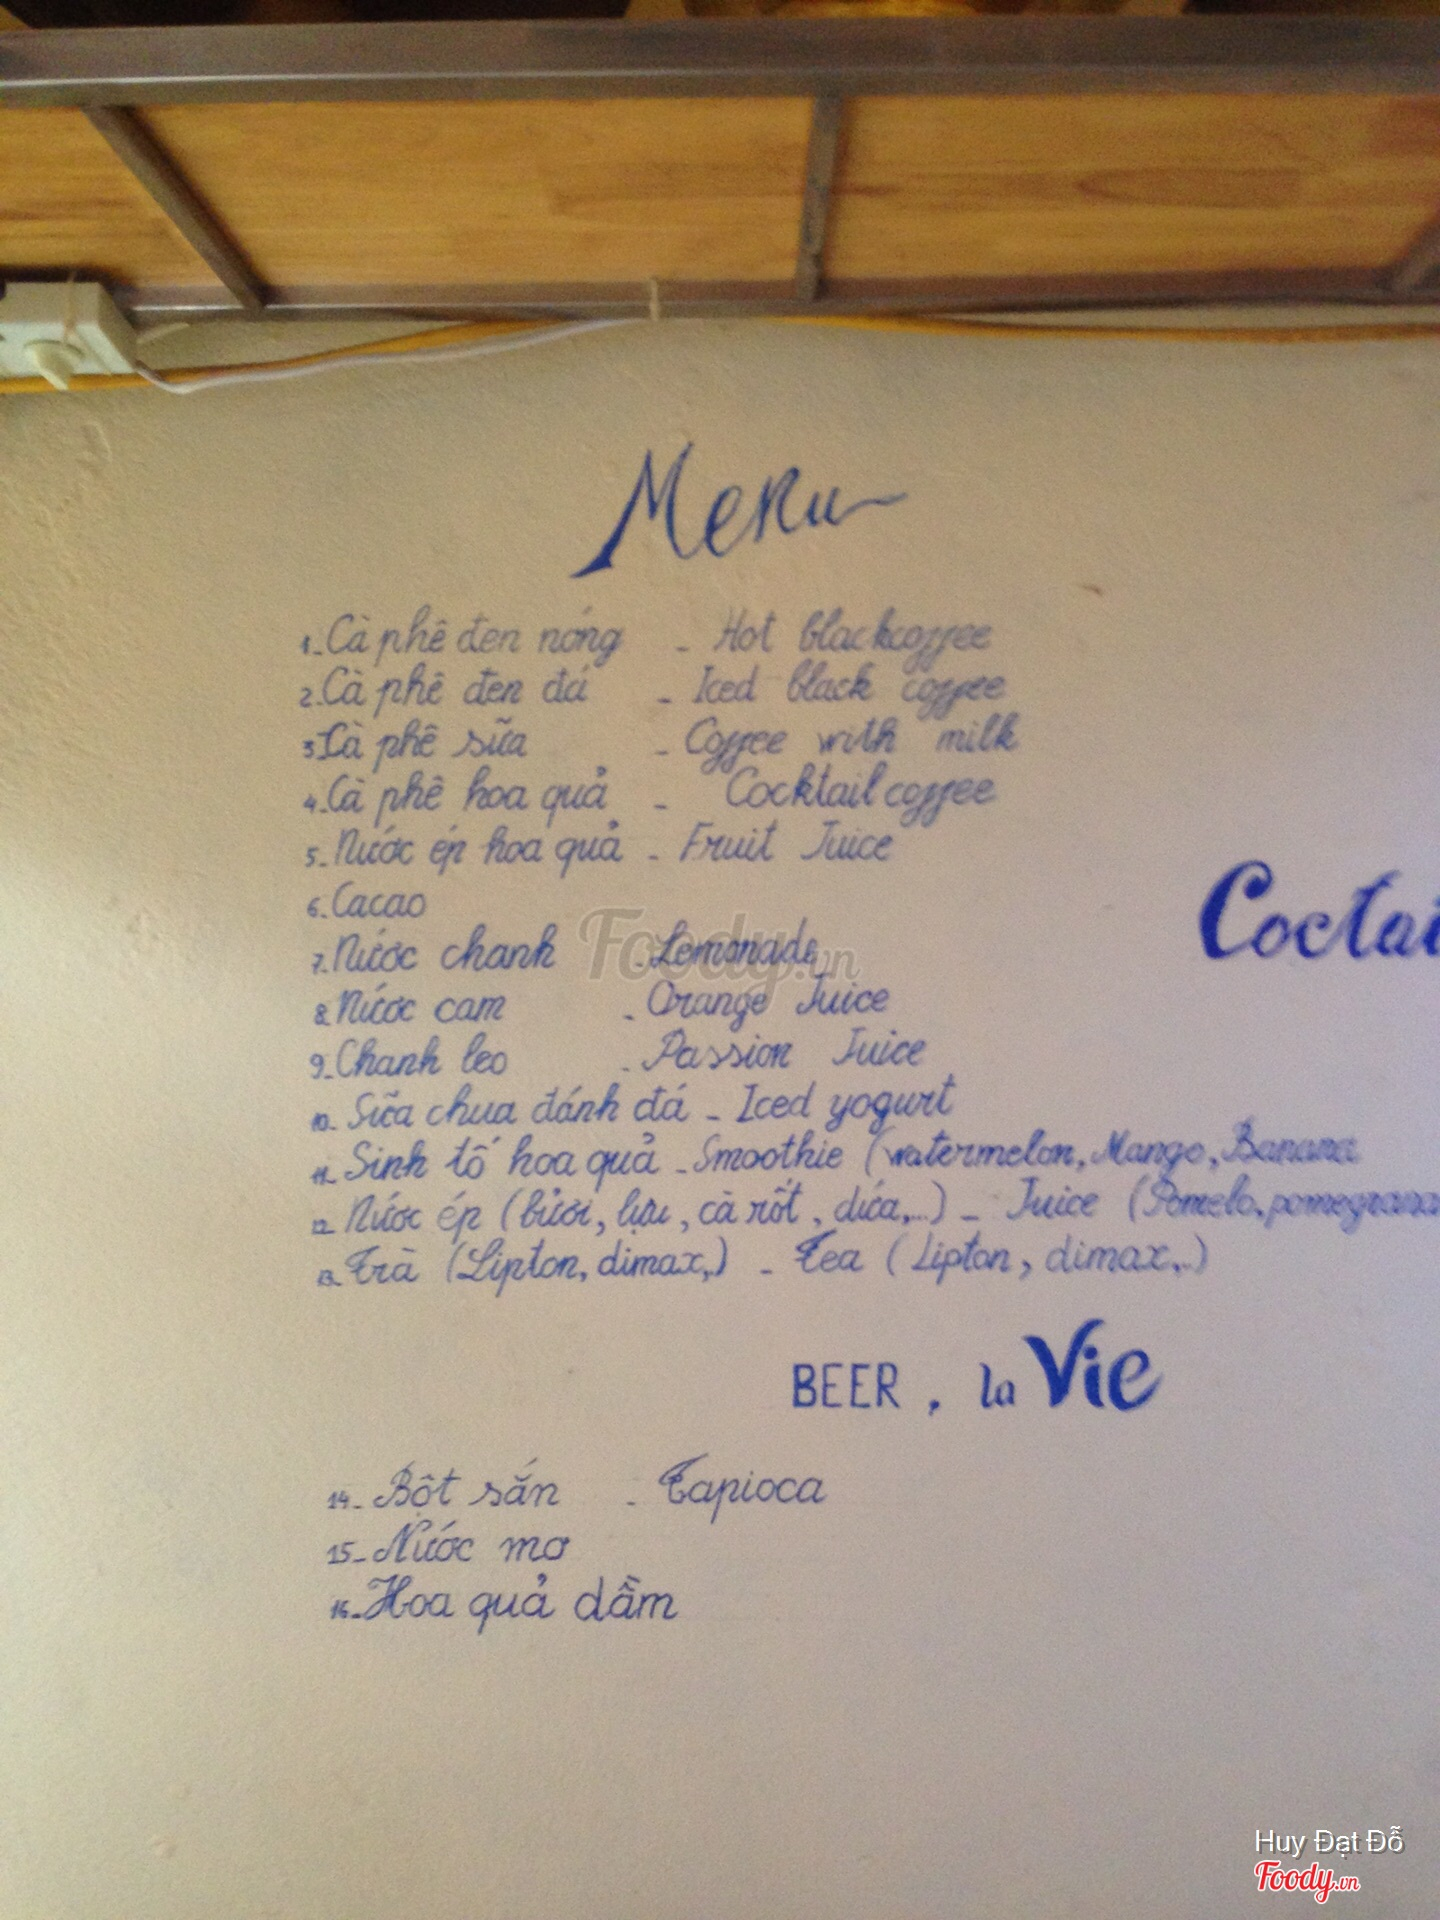 Menu
1. Cà phê đen nóng - Hot blackcoffee
2. Cà phê đen đá - Iced black coffee
3. Cà phê sữa - Coffee with milk
4. Cà phê hoa quả - Cocktail coffee
5. Nước ép hoa quả - Fruit Juice
6. Cacao
7. Nước chanh - Lemonade
8. Nước cam - Orange Juice
9. Chanh leo - Passion Juice
10. Sữa chua đánh đá - Iced yogurt
11. Sinh tố hoa quả - Smoothie (watermelon, Mango, Banana
12. Nước ép (bưởi, lựu, cà rốt, dứa,...) - Juice (Pomelo, pomegrana
13. Trà (Lipton, dimax,.) - Tea (Lipton, dimax,..)
Coctai
BEER, la Vie
14. Bột sắn - Tapioca
15. Nước mơ
16. Hoa quả dầm
Foody.vn
Huy Đạt Đỗ
Foody.vn